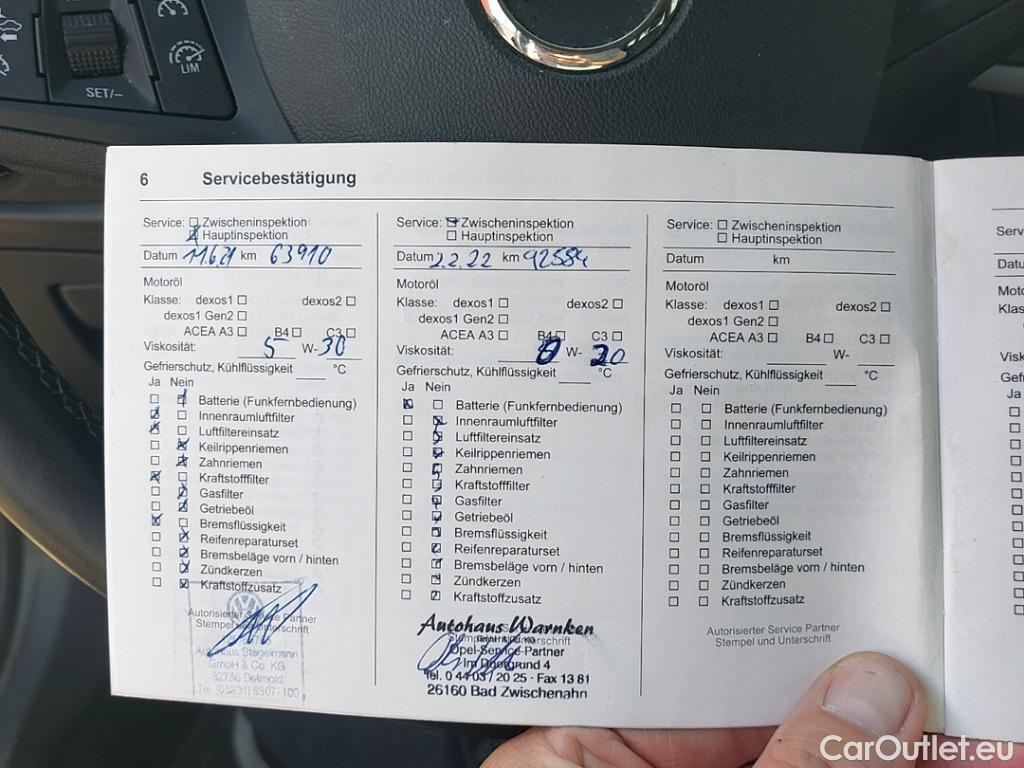 LIM
SET/–
6 Servicebestätigung
Service: Zwischeninspektion
Hauptinspektion
Datum 11.6.21 km 63910
Motoröl
Klasse: dexos1 dexos2
dexos1 Gen2
ACEA A3 B4 C3
Viskosität: 5 W- 30
Gefrierschutz, Kühlflüssigkeit °C
Ja Nein
Batterie (Funkfernbedienung)
Innenraumluftfilter
Luftfiltereinsatz
Keilrippenriemen
Zahnriemen
Kraftstofffilter
Gasfilter
Getriebeöl
Bremsflüssigkeit
Reifenreparaturset
Bremsbeläge vorn / hinten
Zündkerzen
Kraftstoffzusatz
Autorisierter Service Partner
Stempel und Unterschrift
Autohaus Stegelmann
GmbH & Co. KG
32756 Detmold
Tel. (05231) 6307-100
Service: Zwischeninspektion
Hauptinspektion
Datum 2.2.22 km 92584
Motoröl
Klasse: dexos1 dexos2
dexos1 Gen2
ACEA A3 B4 C3
Viskosität: 0 W- 20
Gefrierschutz, Kühlflüssigkeit °C
Ja Nein
Batterie (Funkfernbedienung)
Innenraumluftfilter
Luftfiltereinsatz
Keilrippenriemen
Zahnriemen
Kraftstofffilter
Gasfilter
Getriebeöl
Bremsflüssigkeit
Reifenreparaturset
Bremsbeläge vorn / hinten
Zündkerzen
Kraftstoffzusatz
Autohaus Warnken
GmbH & Co. KG
Opel-Service-Partner
Im Doorgrund 4
Tel. 0 44 03 / 20 25 - Fax 13 81
26160 Bad Zwischenahn
Service: Zwischeninspektion
Hauptinspektion
Datum km
Motoröl
Klasse: dexos1 dexos2
dexos1 Gen2
ACEA A3 B4 C3
Viskosität: W-
Gefrierschutz, Kühlflüssigkeit °C
Ja Nein
Batterie (Funkfernbedienung)
Innenraumluftfilter
Luftfiltereinsatz
Keilrippenriemen
Zahnriemen
Kraftstofffilter
Gasfilter
Getriebeöl
Bremsflüssigkeit
Reifenreparaturset
Bremsbeläge vorn / hinten
Zündkerzen
Kraftstoffzusatz
Autorisierter Service Partner
Stempel und Unterschrift
Ja
CarOutlet.eu